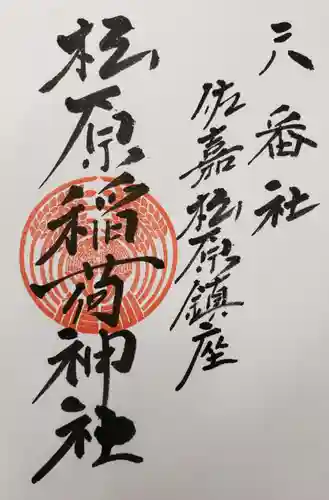 六番社
佐嘉松原鎮座
松原稲荷神社